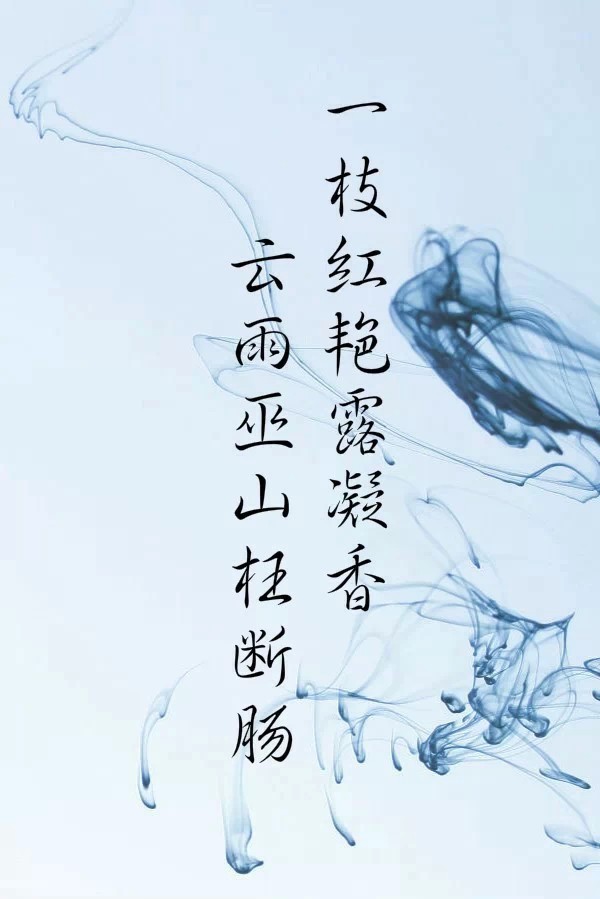 一枝红艳露凝香
云雨巫山枉断肠